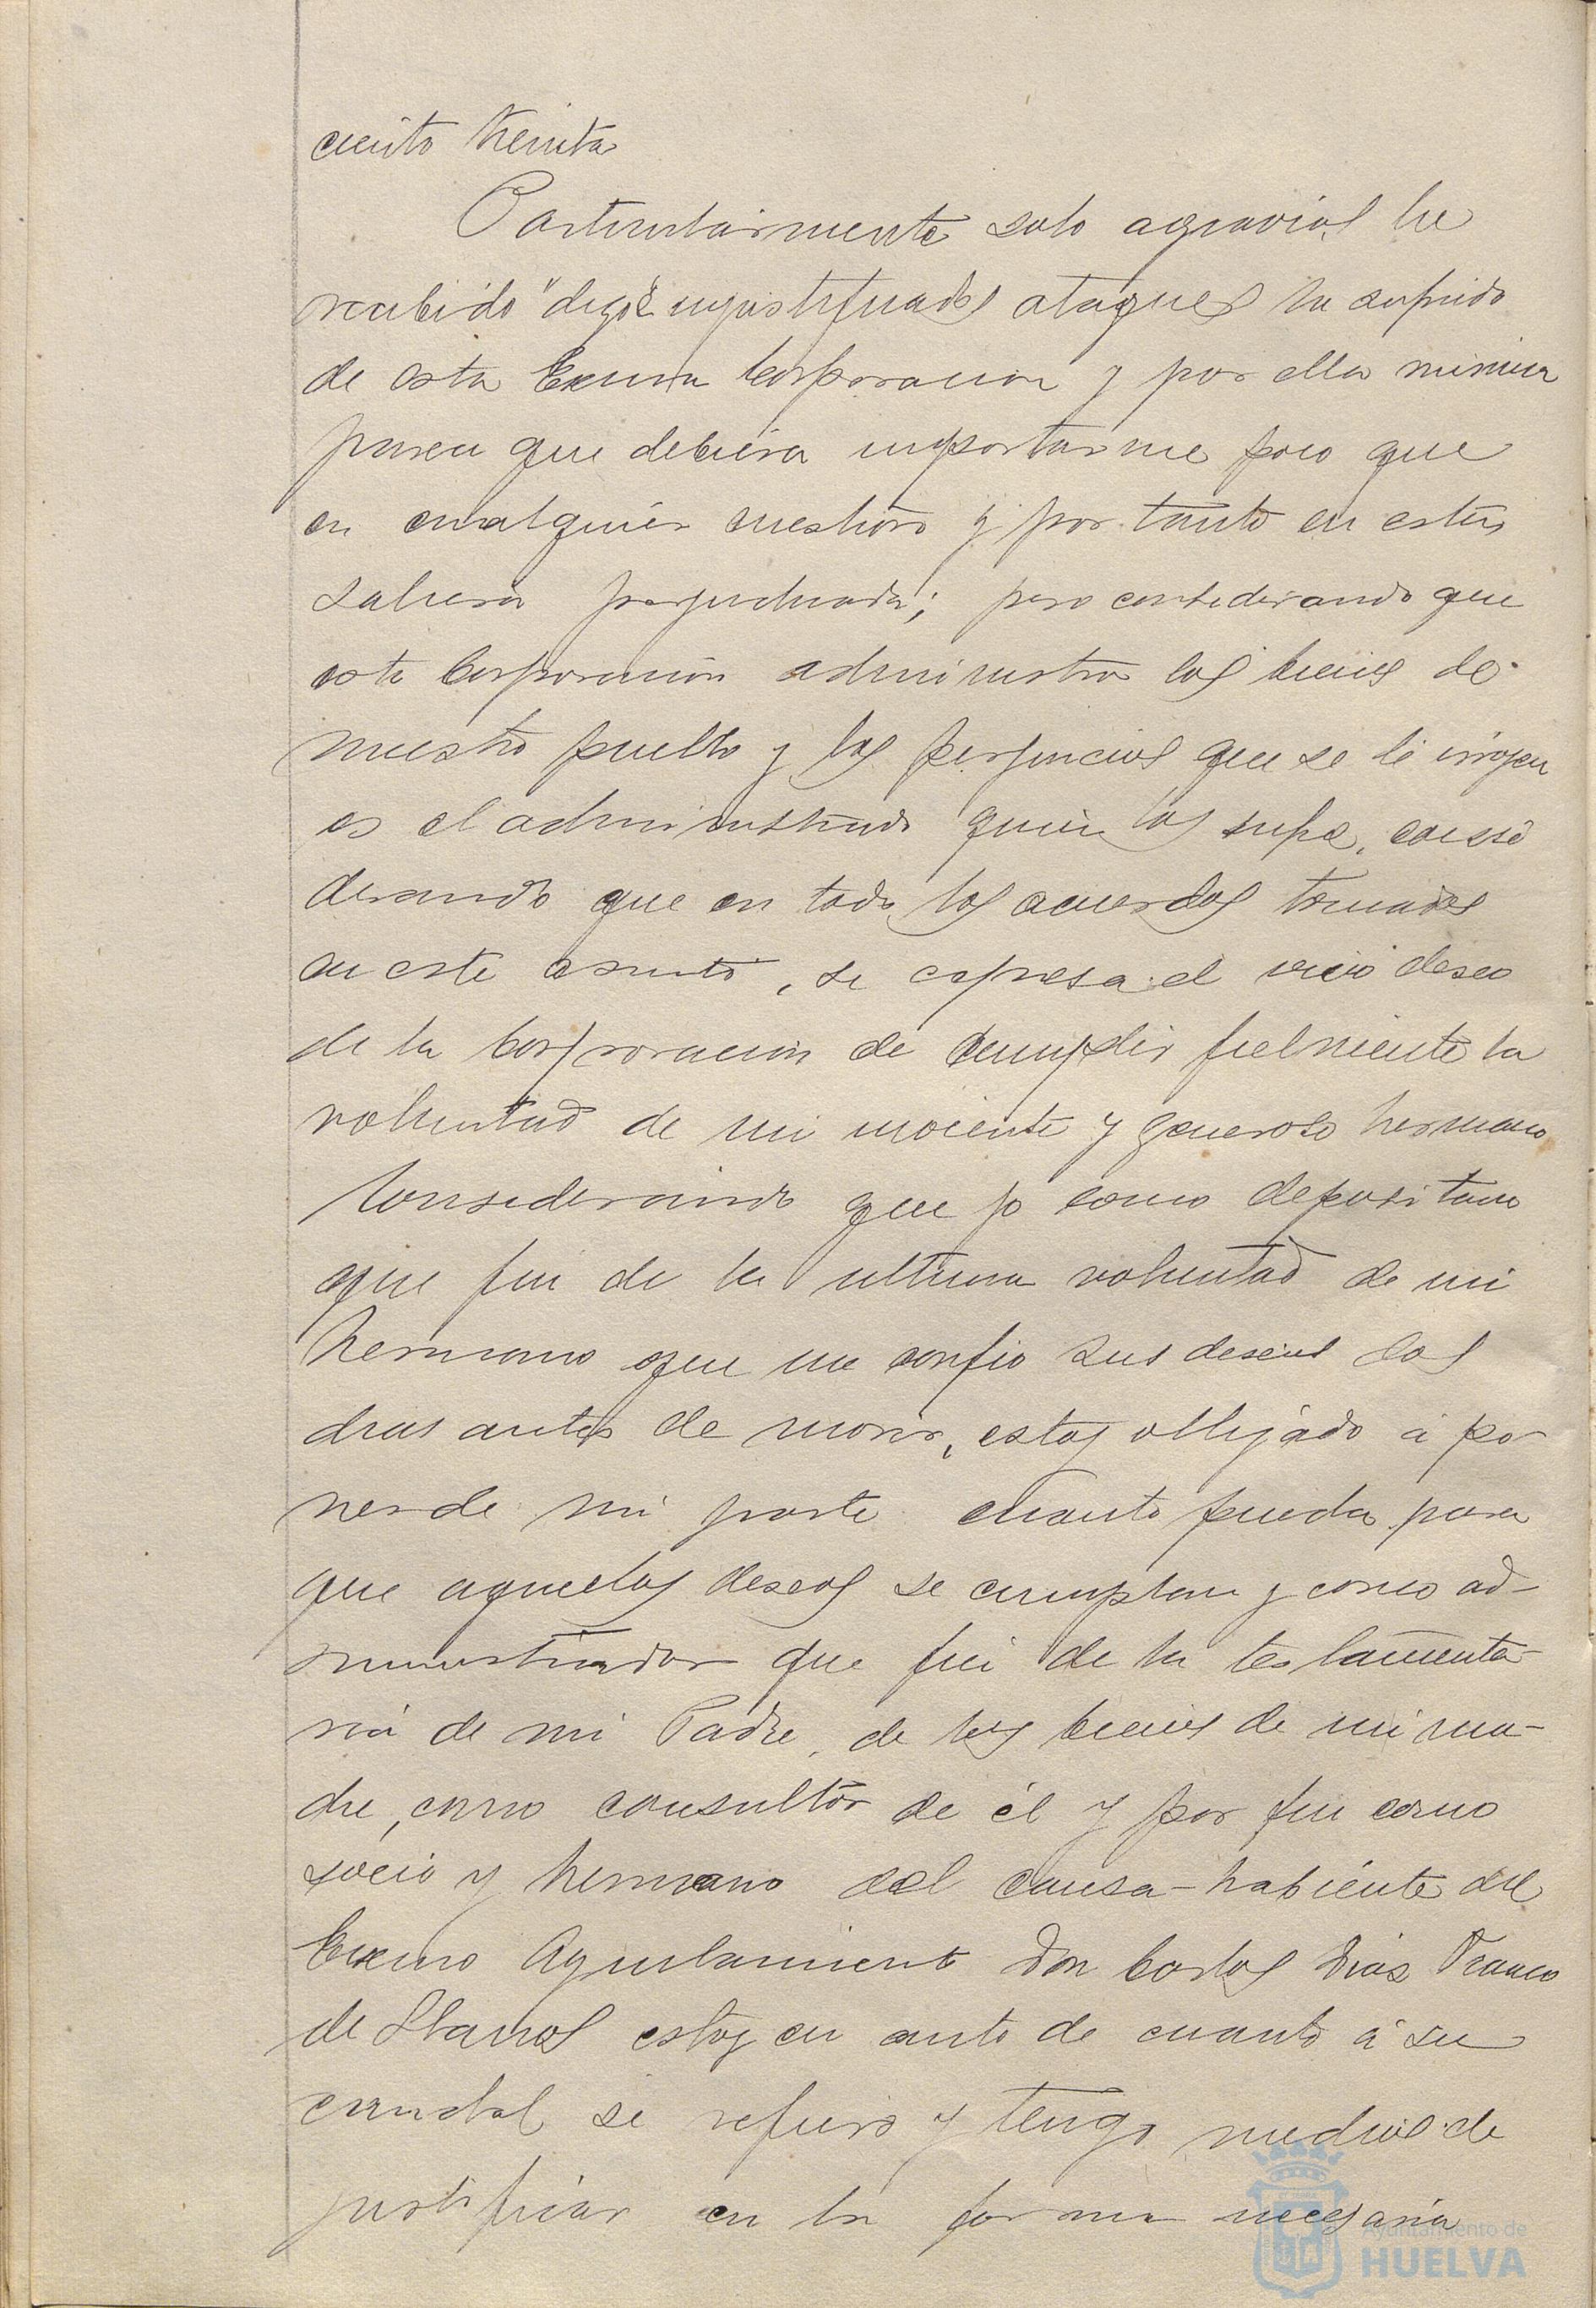 ciento treinta
Particularmente solo agravios he
recibido "digo" injustificados ataques he sufrido
de esta Excma Corporacion y por ello
parece que debiera importarme poco que
en cualquier cuestion y por tanto en esta
saliera perjudicada; pero considerando que
esta Corporacion administra los bienes de
nuestro pueblo y los perjuicios que se le irrogen
es el administrado quien los sufre, consi
derando que en todos los acuerdos tomados
en este asunto, se expresa el vivo deseo
de la Corporacion de cumplir fielmente la
voluntad de mi inocente y generoso hermano
Considerando que yo como depositario
que fui de la ultima voluntad de mi
hermano que me confio sus deseos dos
dias antes de morir, estoy obligado á po
ner de mi parte cuanto pueda para
que aquellos deseos se cumplan y como ad-
ministrador que fui de la testamenta-
ria de mi Padre, de los bienes de mi ma-
dre, como consultor de él y por fin como
socio y hermano del causa-habiente del
Excmo Ayuntamiento Don Carlos Diaz Franco
de Llanos estoy en auto de cuanto á su
caudal se refiere y tengo medios de
justificar en la forma necesaria
Ayuntamiento de
HUELVA